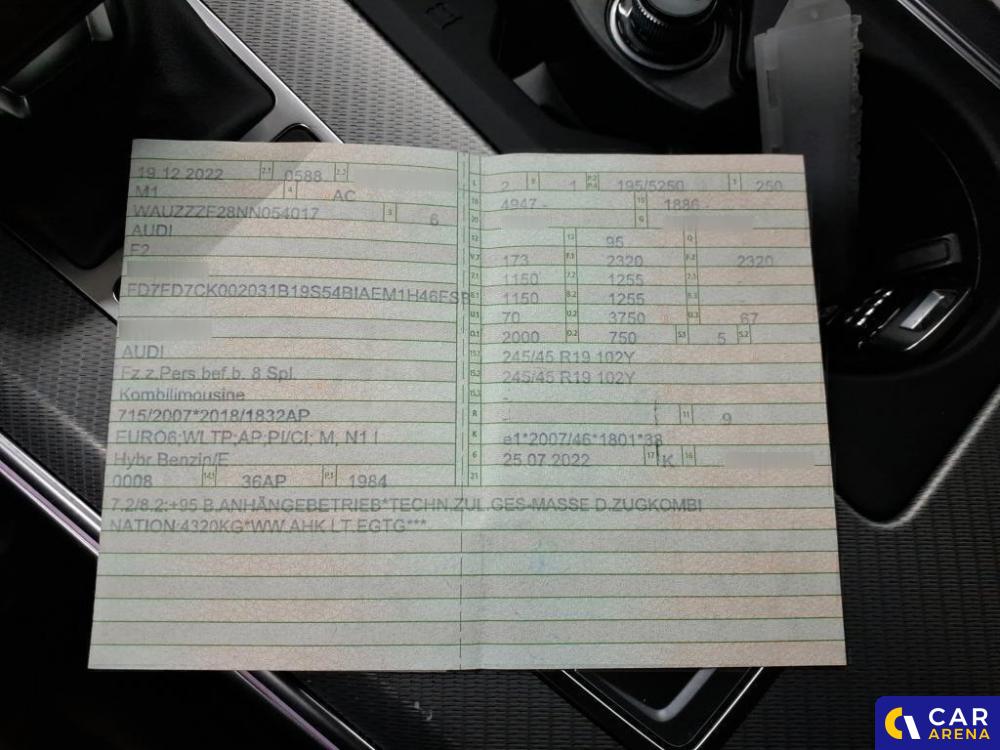 19.12.2022 2.1 0588 2.2
M1 4 AC
WAUZZZF28NN054017 3 6
AUDI
F2
FD7FD7CK002031B19S54BIAEM1H46ESB
AUDI
Fz.z.Pers.bef.b. 8 Spl.
Kombilimousine
715/2007*2018/1832AP
EURO6;WLTP;AP;PI/CI; M, N1 I
Hybr.Benzin/E
0008 14.1 36AP P.1 1984
L 2 9 1 P.2 P.4 195/5250 T 250
18 4947 - 19 1886 -
20 G
12 13 95 Q
V.7 173 F.1 2320 F.2 2320
7.1 1150 7.2 1255 7.3
8.1 1150 8.2 1255 8.3
U.1 70 U.2 3750 U.3 67
O.1 2000 O.2 750 S.1 5 S.2
15.1 245/45 R19 102Y
15.2 245/45 R19 102Y
15.3 -
R - 11 9
K e1*2007/46*1801*38
6 25.07.2022 17 K 16
21
7.2/8.2:+95 B.ANHÄNGEBETRIEB*TECHN.ZUL.GES-MASSE D.ZUGKOMBI
NATION:4320KG*WW.AHK LT.EGTG***
CAR
ARENA